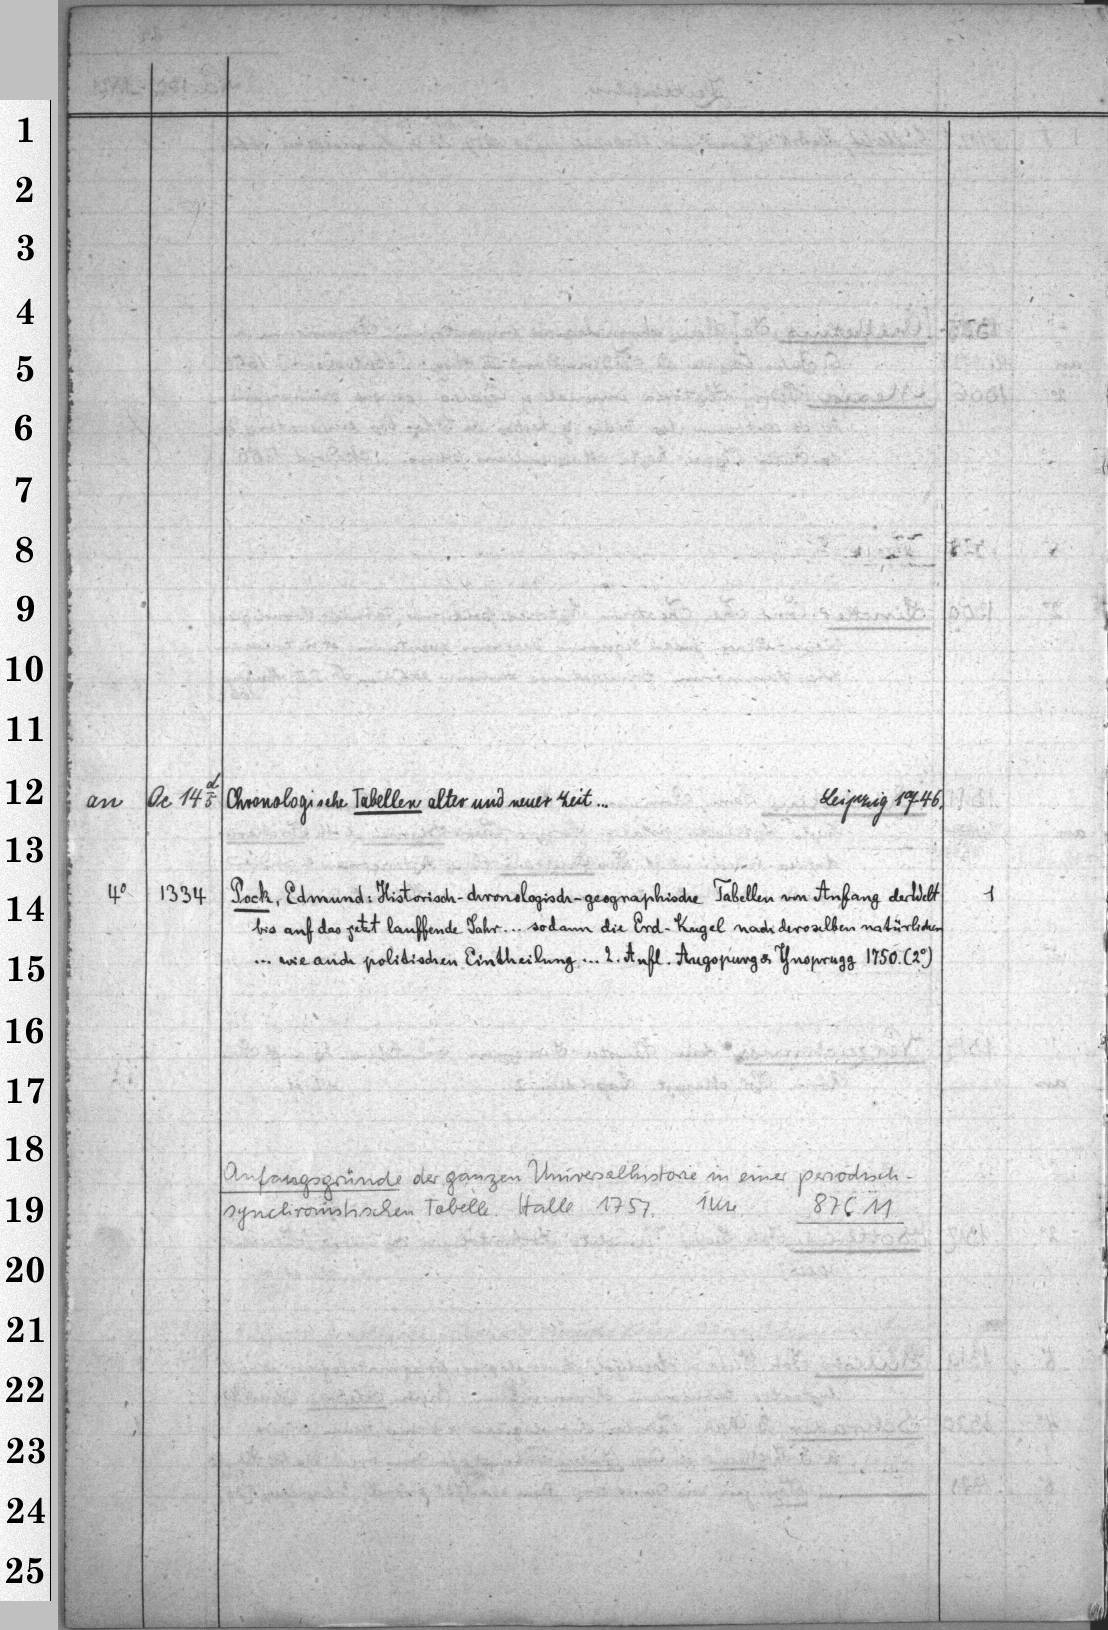 1
2
3
4
5
6
7
8
9
10
11
12
an Oc 14 d/5 Chronologische Tabellen alter und neuer Zeit ... Leipzig 1746.
13
4° 1334 Pock, Edmund: Historisch-chronologisch-geographische Tabellen von Anfang der Welt 1
14
bis auf das jetzt lauffende Jahr ... sodann die Erd-Kugel nach deroselben natürlichen
15
... wie auch politischen Eintheilung ... 2. Aufl. Augspurg & Ynsprugg 1750. (2°)
16
17
18
Anfangsgründe der ganzen Universalhistorie in einer periodisch-
19
synchronistischen Tabelle. Halle 1757. 87C11
20
21
22
23
24
25